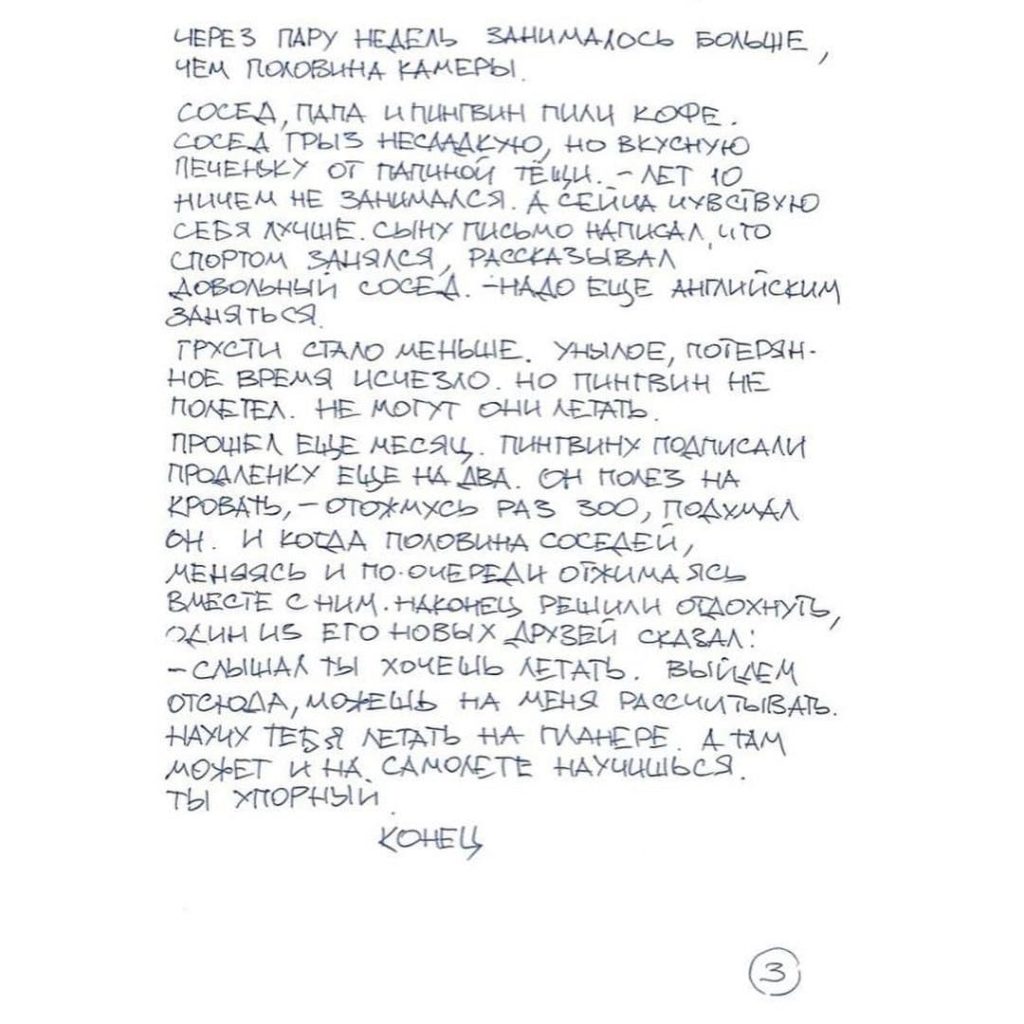 ЧЕРЕЗ ПАРУ НЕДЕЛЬ ЗАНИМАЛОСЬ БОЛЬШЕ,
ЧЕМ ПОЛОВИНА КАМЕРЫ.
СОСЕД, ПАПА И ПИНГВИН ПИЛИ КОФЕ.
СОСЕД ГРЫЗ НЕСЛАДКУЮ, НО ВКУСНУЮ
ПЕЧЕНЬКУ ОТ ПАПИНОЙ ТЁЩИ. – ЛЕТ 10
НИЧЕМ НЕ ЗАНИМАЛСЯ. А СЕЙЧА ЧУВСТВУЮ
СЕБЯ ЛУЧШЕ. СЫНУ ПИСЬМО НАПИСАЛ, ЧТО
СПОРТОМ ЗАНЯЛСЯ, РАССКАЗЫВАЛ
ДОВОЛЬНЫЙ СОСЕД. – НАДО ЕЩЕ АНГЛИЙСКИМ
ЗАНЯТЬСЯ.
ГРУСТИ СТАЛО МЕНЬШЕ. УНЫЛОЕ, ПОТЕРЯН-
НОЕ ВРЕМЯ ИСЧЕЗЛО. НО ПИНГВИН НЕ
ПОЛЕТЕЛ. НЕ МОГУТ ОНИ ЛЕТАТЬ.
ПРОШЕЛ ЕЩЕ МЕСЯЦ. ПИНГВИНУ ПОДПИСАЛИ
ПРОДЛЕНКУ ЕЩЕ НА ДВА. ОН ПОЛЕЗ НА
КРОВАТЬ, – ОТОЖМУСЬ РАЗ 300, ПОДУМАЛ
ОН. И КОГДА ПОЛОВИНА СОСЕДЕЙ,
МЕНЯЯСЬ И ПО-ОЧЕРЕДИ ОТЖИМАЯСЬ
ВМЕСТЕ С НИМ. НАКОНЕЦ РЕШИЛИ ОТДОХНУТЬ,
ОДИН ИЗ ЕГО НОВЫХ ДРУЗЕЙ СКАЗАЛ:
– СЛЫШАЛ ТЫ ХОЧЕШЬ ЛЕТАТЬ. ВЫЙДЕМ
ОТСЮДА, МОЖЕШЬ НА МЕНЯ РАССЧИТЫВАТЬ.
НАУЧУ ТЕБЯ ЛЕТАТЬ НА ПЛАНЕРЕ. А ТАМ
МОЖЕТ И НА САМОЛЕТЕ НАУЧИШЬСЯ.
ТЫ УПОРНЫЙ.
КОНЕЦ
3